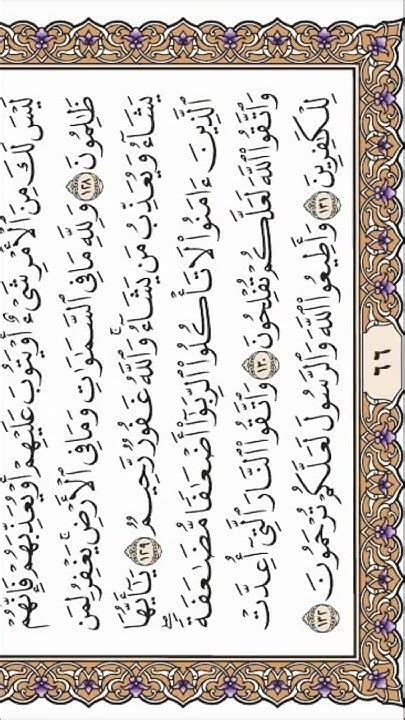 لَيْسَ لَكَ مِنَ ٱلْأَمْرِ شَىْءٌ أَوْ يَتُوبَ عَلَيْهِمْ أَوْ يُعَذِّبَهُمْ فَإِنَّهُمْ
ظَٰلِمُونَ ١٢٨ وَلِلَّهِ مَا فِى ٱلسَّمَٰوَٰتِ وَمَا فِى ٱلْأَرْضِۚ يَغْفِرُ لِمَن
يَشَآءُ وَيُعَذِّبُ مَن يَشَآءُۚ وَٱللَّهُ غَفُورٌ رَّحِيمٌ ١٢٩ يَٰٓأَيُّهَا
ٱلَّذِينَ ءَامَنُوا۟ لَا تَأْكُلُوا۟ ٱلرِّبَوٰٓا۟ أَضْعَٰفًا مُّضَٰعَفَةًۖ
وَٱتَّقُوا۟ ٱللَّهَ لَعَلَّكُمْ تُفْلِحُونَ ١٣٠ وَٱتَّقُوا۟ ٱلنَّارَ ٱلَّتِىٓ أُعِدَّتْ
لِلْكَٰفِرِينَ ١٣١ وَأَطِيعُوا۟ ٱللَّهَ وَٱلرَّسُولَ لَعَلَّكُمْ تُرْحَمُونَ ١٣٢
٦٦